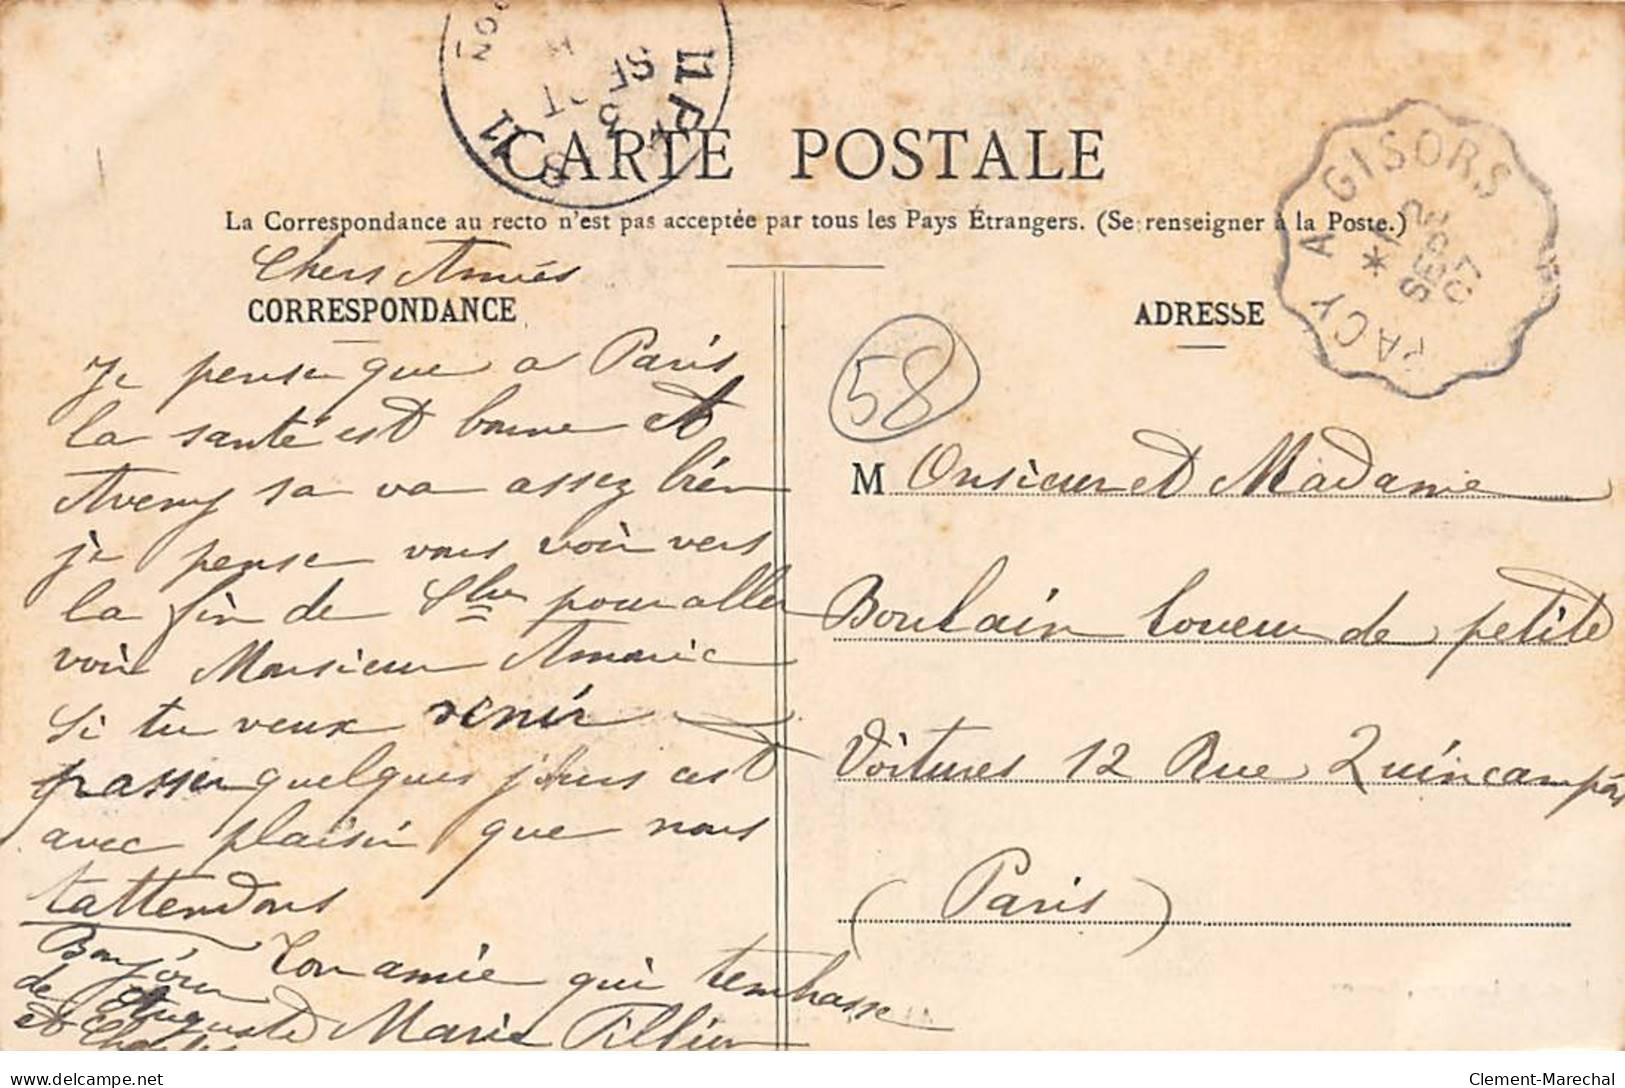 CARTE POSTALE
La Correspondance au recto n'est pas acceptée par tous les Pays Étrangers. (Se renseigner à la Poste.)
PACY A GISORS
SEPT
07
11
3
Chers Amiés
CORRESPONDANCE
Je pense que a Paris
la santé est bonne et
Aveny sa va assez bien
je pense vous voir vers
la fin de 7bre pour aller
voir Monsieur Amaric
Si tu veux venir
passer quelques jours cest
avec plaisir que nous
tattendons
Ton amie qui tembrasse
Marie Tillier
Bonjour
de Auguste
et Charles
58
ADRESSE
M Onsieur et Madame
Boulain loueur de petite
Voitures 12 Rue Quincampoix
(Paris)
Clement-Marechal